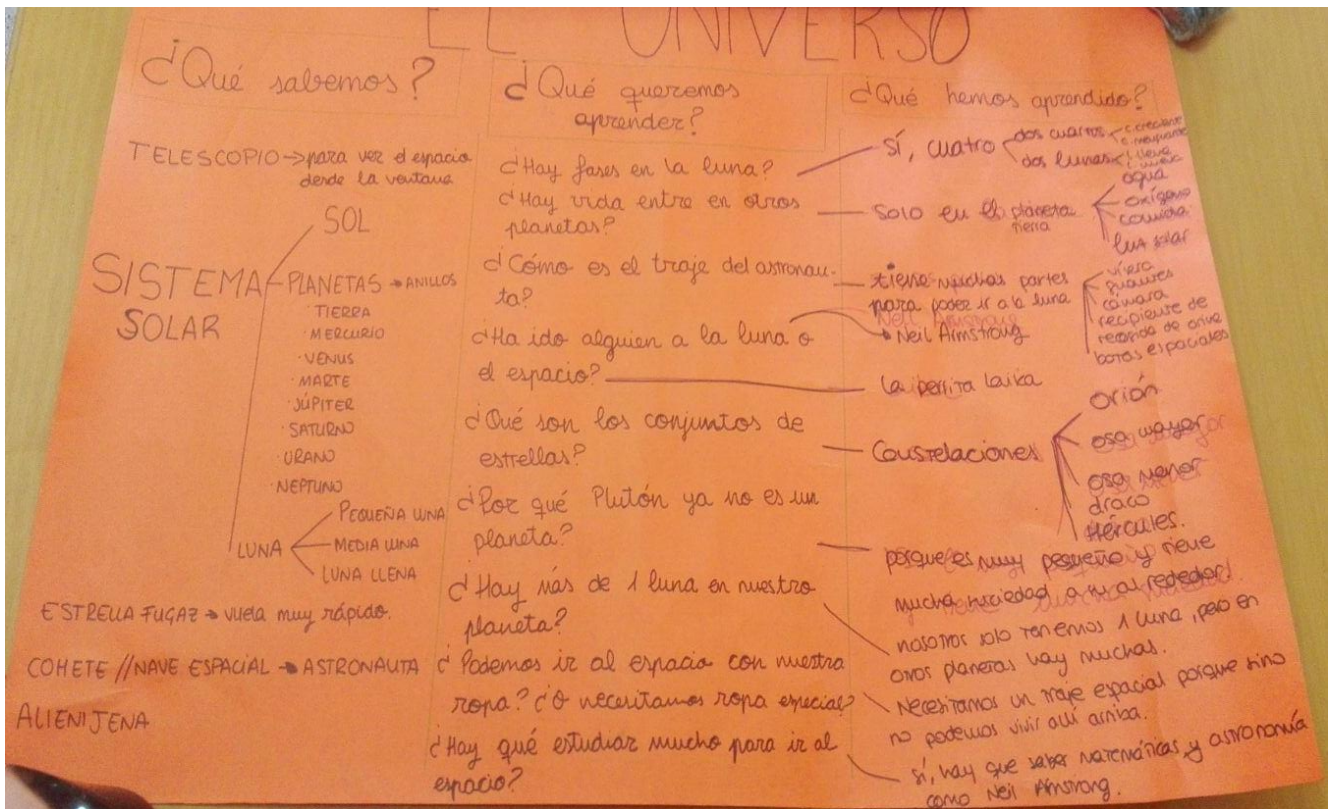 EL UNIVERSO
¿Qué sabemos?
TELESCOPIO → para ver el espacio
desde la ventana
SISTEMA
SOLAR
SOL
PLANETAS → ANILLOS
· TIERRA
· MERCURIO
· VENUS
· MARTE
· JÚPITER
· SATURNO
· URANO
· NEPTUNO
LUNA
PEQUEÑA LUNA
MEDIA LUNA
LUNA LLENA
ESTRELLA FUGAZ → vuela muy rápido.
COHETE // NAVE ESPACIAL → ASTRONAUTA
ALIENIJENA
¿Qué queremos
aprender?
¿Hay fases en la luna?
¿Hay vida entre en otros
planetas?
¿Cómo es el traje del astronau-
ta?
¿Ha ido alguien a la luna o
el espacio?
¿Qué son los conjuntos de
estrellas?
¿Por qué Plutón ya no es un
planeta?
¿Hay más de 1 luna en nuestro
planeta?
¿Podemos ir al espacio con nuestra
ropa? ¿O necesitamos ropa especial?
¿Hay qué estudiar mucho para ir al
espacio?
¿Qué hemos aprendido?
sí, cuatro
dos cuartos
c. creciente
c. menguante
dos lunas
l. llena
l. nueva
solo en el planeta
tierra
agua
oxígeno
comida
luz solar
tiene muchas partes
para poder ir a la luna
visera
guantes
cámara
recipiente de
recogida de orina
botas espaciales
Neil Armstrong
Neil Armstrong
la perrita laika
constelaciones
orión
osa mayor
osa menor
draco
Hércules.
porque es muy pequeño y tiene
mucha suciedad a su alrededor.
nosotros solo tenemos 1 luna, pero en
otros planetas hay muchas.
Necesitamos un traje espacial porque sino
no podemos vivir allí arriba.
sí, hay que saber matemáticas y astronomía
como Neil Armstrong.